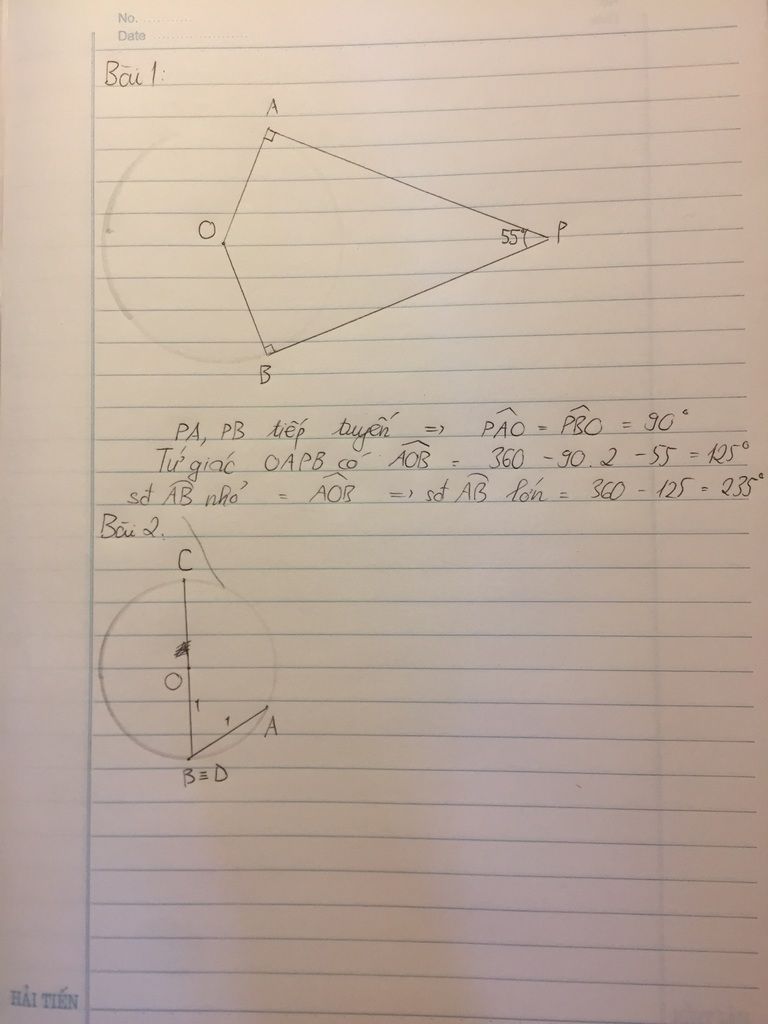 No.
Date
Bài 1:
A
O
55°
P
B
PA, PB tiếp tuyến => PAO = PBO = 90°
Tứ giác OAPB có AOB = 360 - 90.2 - 55 = 125°
sđ AB nhỏ = AOB => sđ AB lớn = 360 - 125 = 235°
Bài 2.
C
O
1
1
A
B≡D
HẢI TIẾN